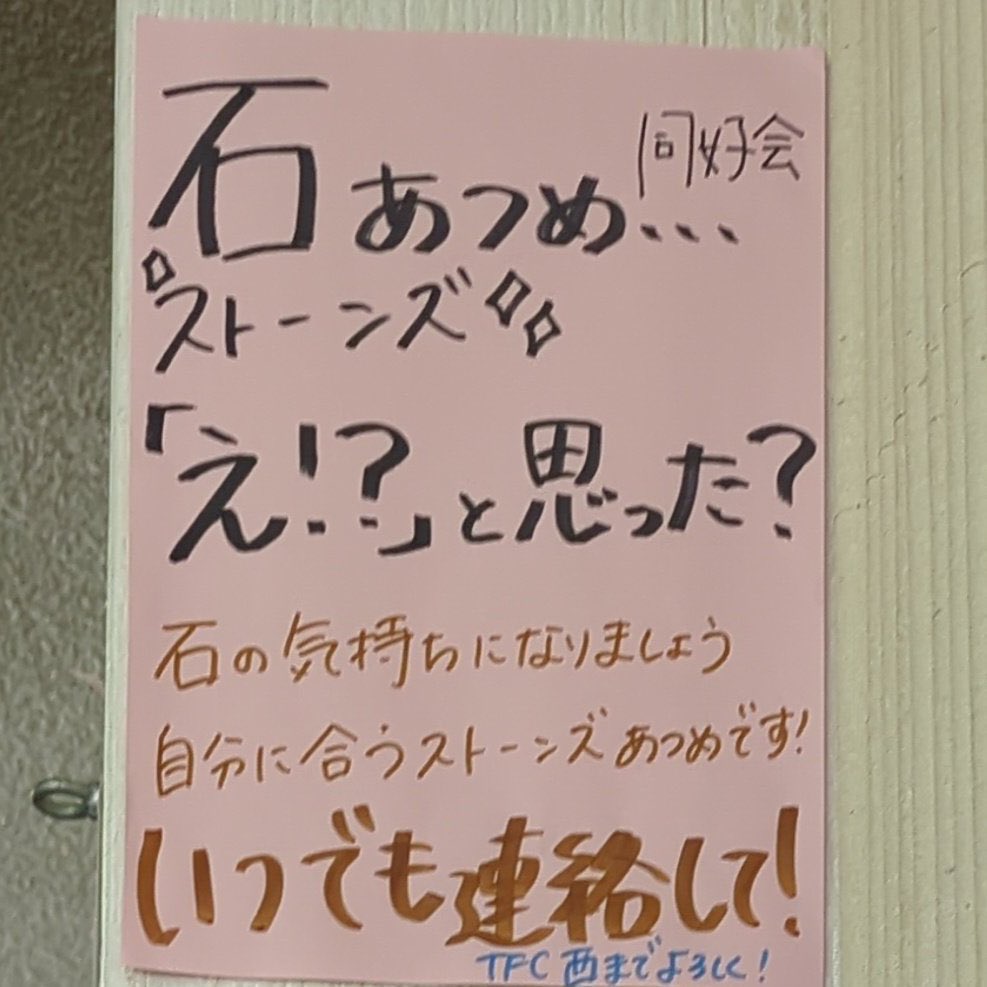 石あつめ...同好会
ストーンズ
「え!?」と思った?
石の気持ちになりましょう
自分に合うストーンズあつめです!
いつでも連絡して!
TFC 西までよろしく!